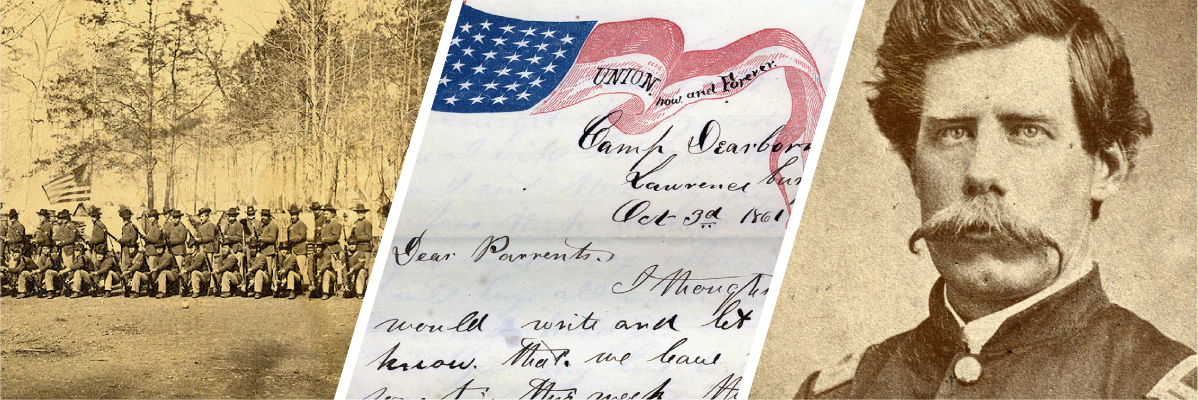 UNION,
now and Forever.
Camp Dearborn
Lawrence
Oct 3d 1861
Dear Parrents.
I
would write and let
know. that. we leave
this week